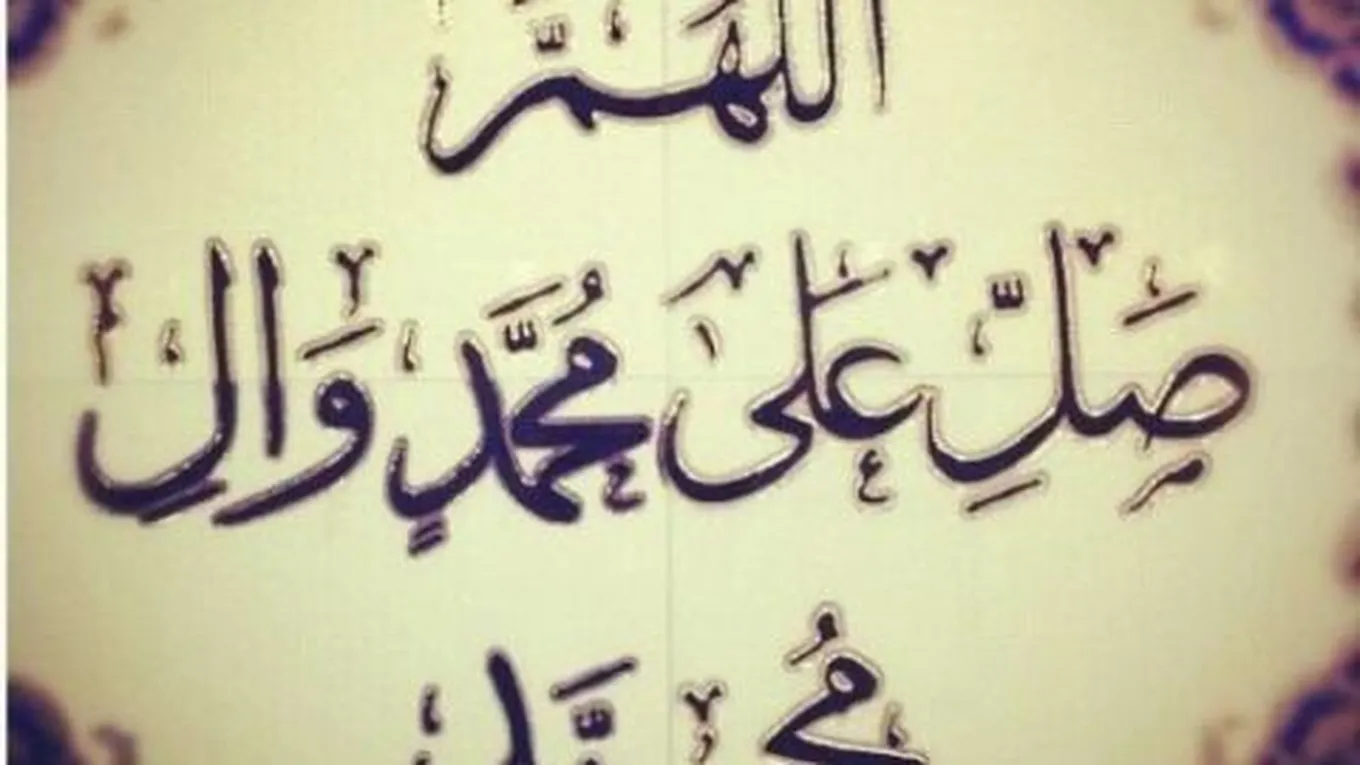 اللهم
صَلِّ عَلَى مُحَمَّدٍ وَالِ
مُحَمَّد